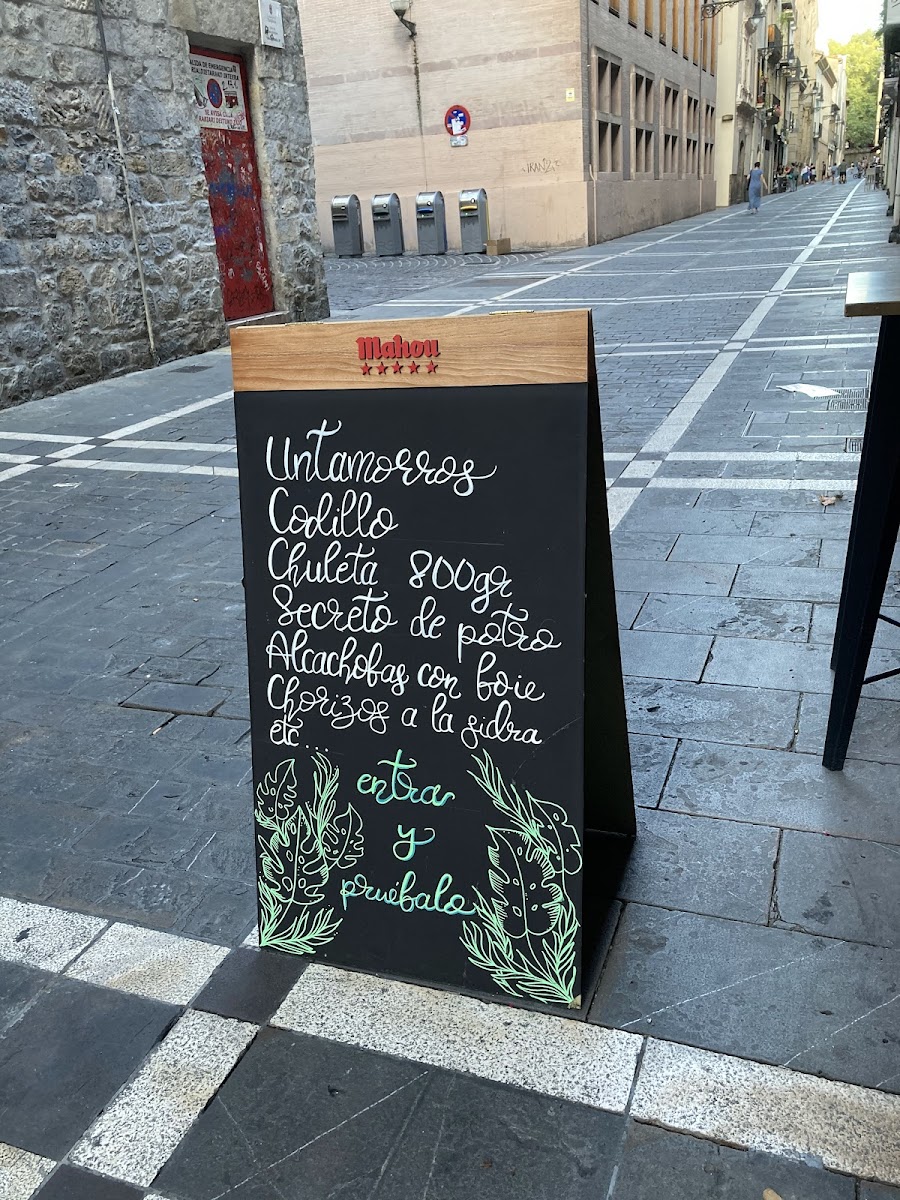 SALIDA DE EMERGENCIA
Mahou
Untamorros
Codillo
Chuleta 800gr
Secreto de potro
Alcachofas con foie
Chorizos a la sidra
etc...
entra
y
pruébalo